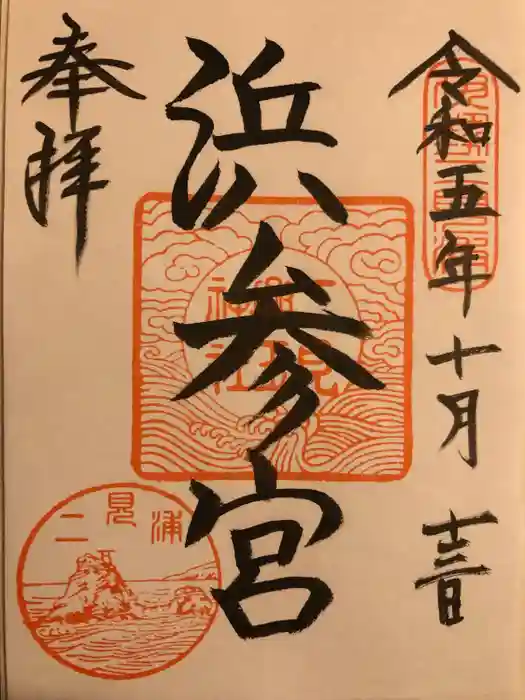 令和五年十月十三日
浜参宮
奉拝
二見興玉神社
二見浦